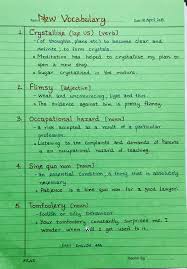 New Vocabulary
1. Crystallize (also US) (verb)
• (of thoughts, plans etc) to become clear and
definite; to form crystals.
• Meditation has helped to crystallize my plan to
open a new shop.
• Sugar crystallised in the mixture.
2. Flimsy (adjective)
• Weak and unconvincing; light and thin
• The evidence against him is pretty flimsy.
3. Occupational hazard (noun)
• a risk accepted as a result of a particular
profession.
• Listening to the complaints and demands of Parents
is an occupational hazard of teaching.
4. Sine qua non (noun)
• an essential condition; a thing that is absolutely
necessary
• Patience is a sine qua non for a good lawyer.
5. Tomfoolery (noun)
• foolish or silly behaviour
• Your tomfoolery constantly surprises me. I
wonder when will I get used to it.